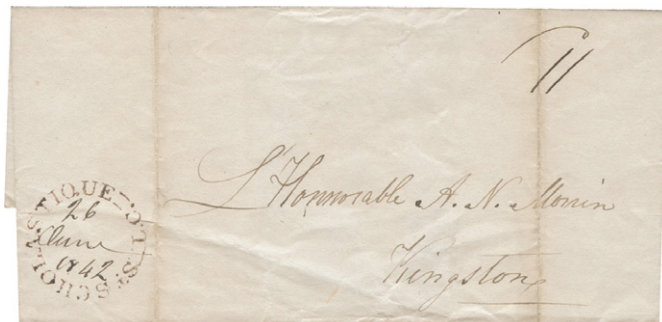 11
L'Honnorable A. N. Morin
Kingston
STE SCHOLASTIQUE L.C.
26
June
1842